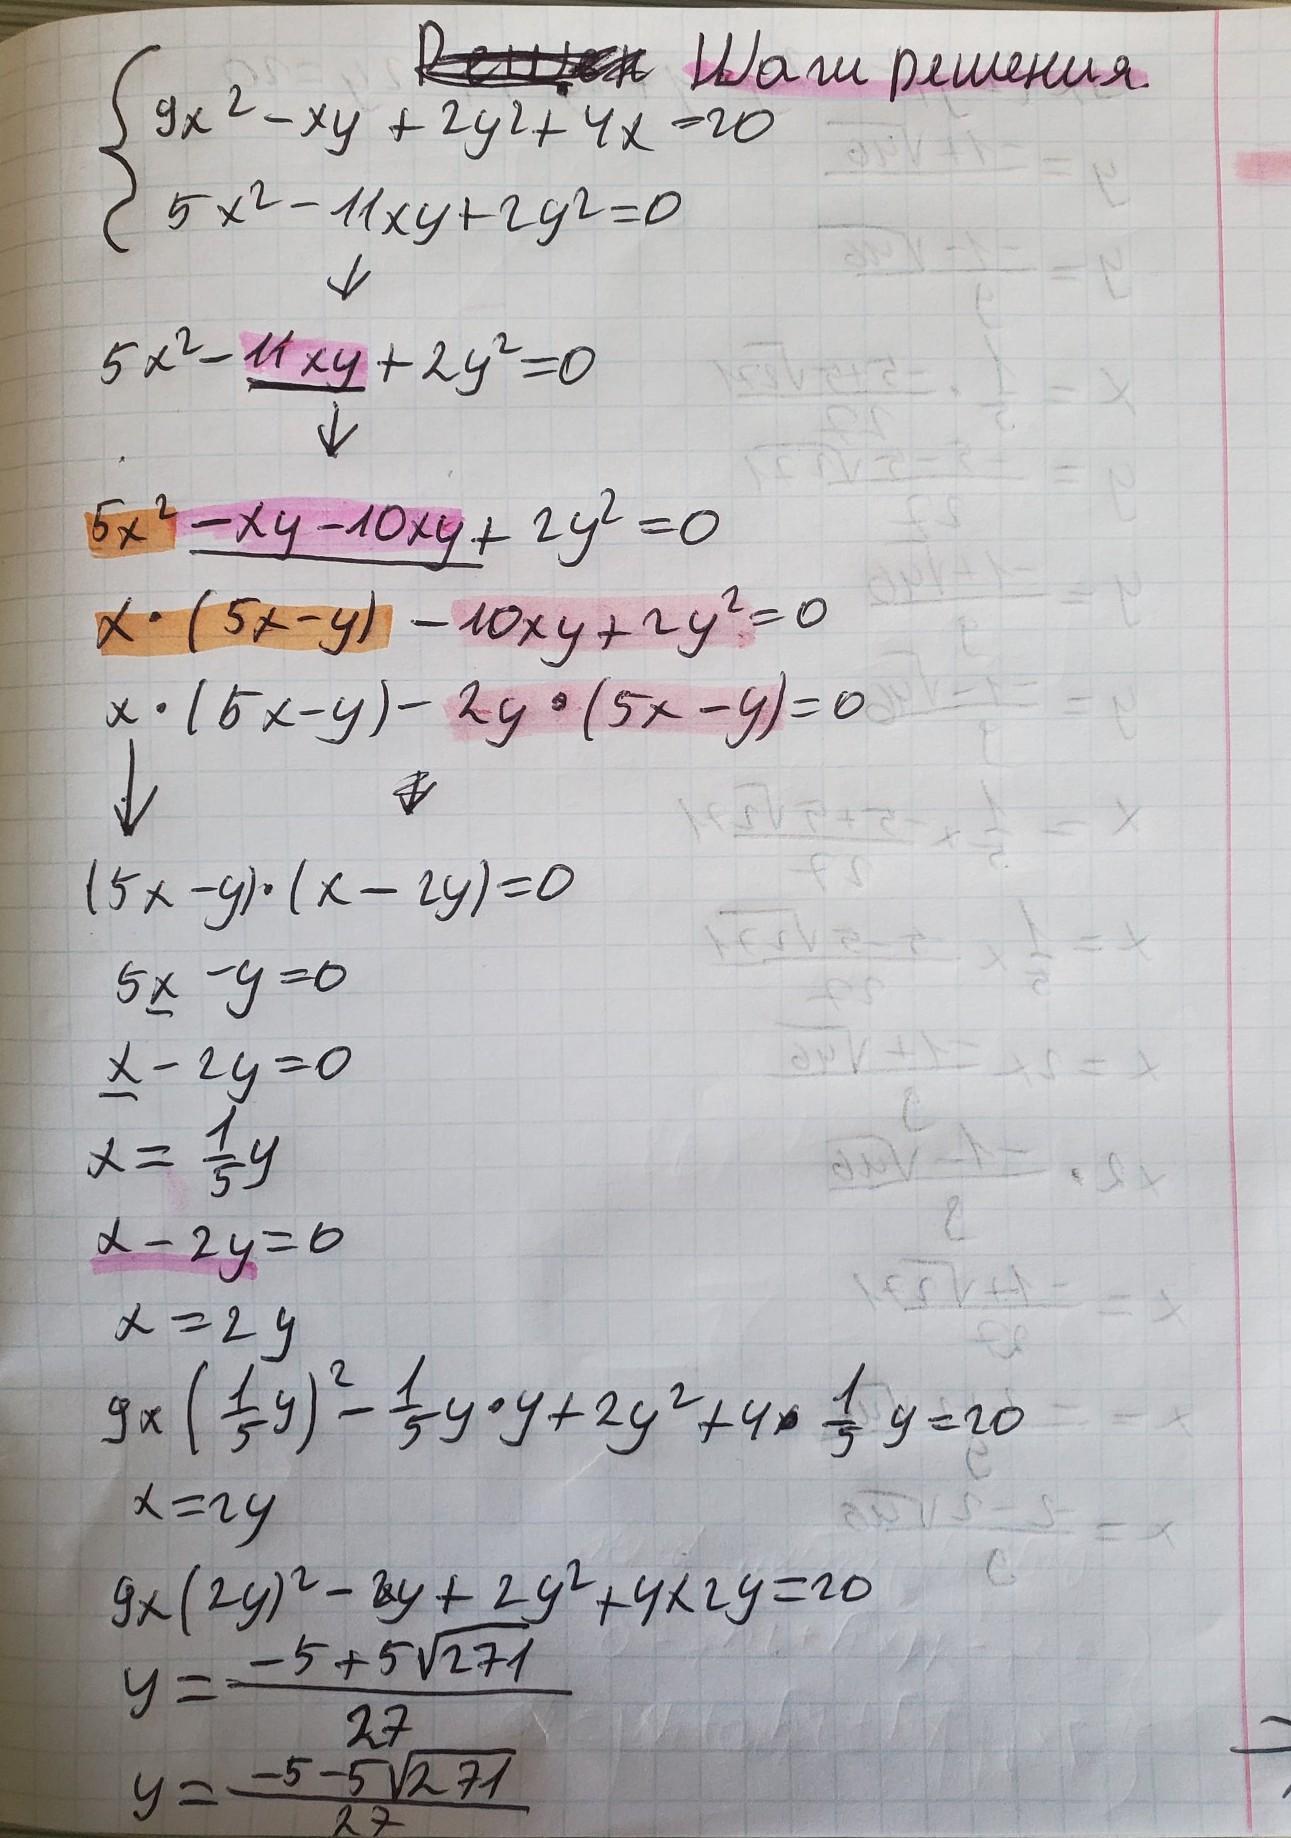 Шаги решения.
9x² - xy + 2y² + 4x = 20
5x² - 11xy + 2y² = 0
↓
5x² - 11xy + 2y² = 0
↓
5x² - xy - 10xy + 2y² = 0
x · (5x - y) - 10xy + 2y² = 0
x · (5x - y) - 2y · (5x - y) = 0
↓ ↓
(5x - y) · (x - 2y) = 0
5x - y = 0
x - 2y = 0
x = 1/5 y
x - 2y = 0
x = 2y
9x (1/5 y)² - 1/5 y · y + 2y² + 4x 1/5 y = 20
x = 2y
9x (2y)² - 2y + 2y² + 4x2y = 20
y = (-5 + 5√271)/27
y = (-5 - 5√271)/27